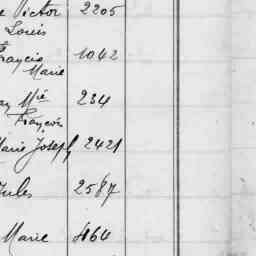 Victor 2205
Louis
Francis 1042
Marie
Mie 234
François
Marie Joseph 2421
Jules 2587
Marie 4164